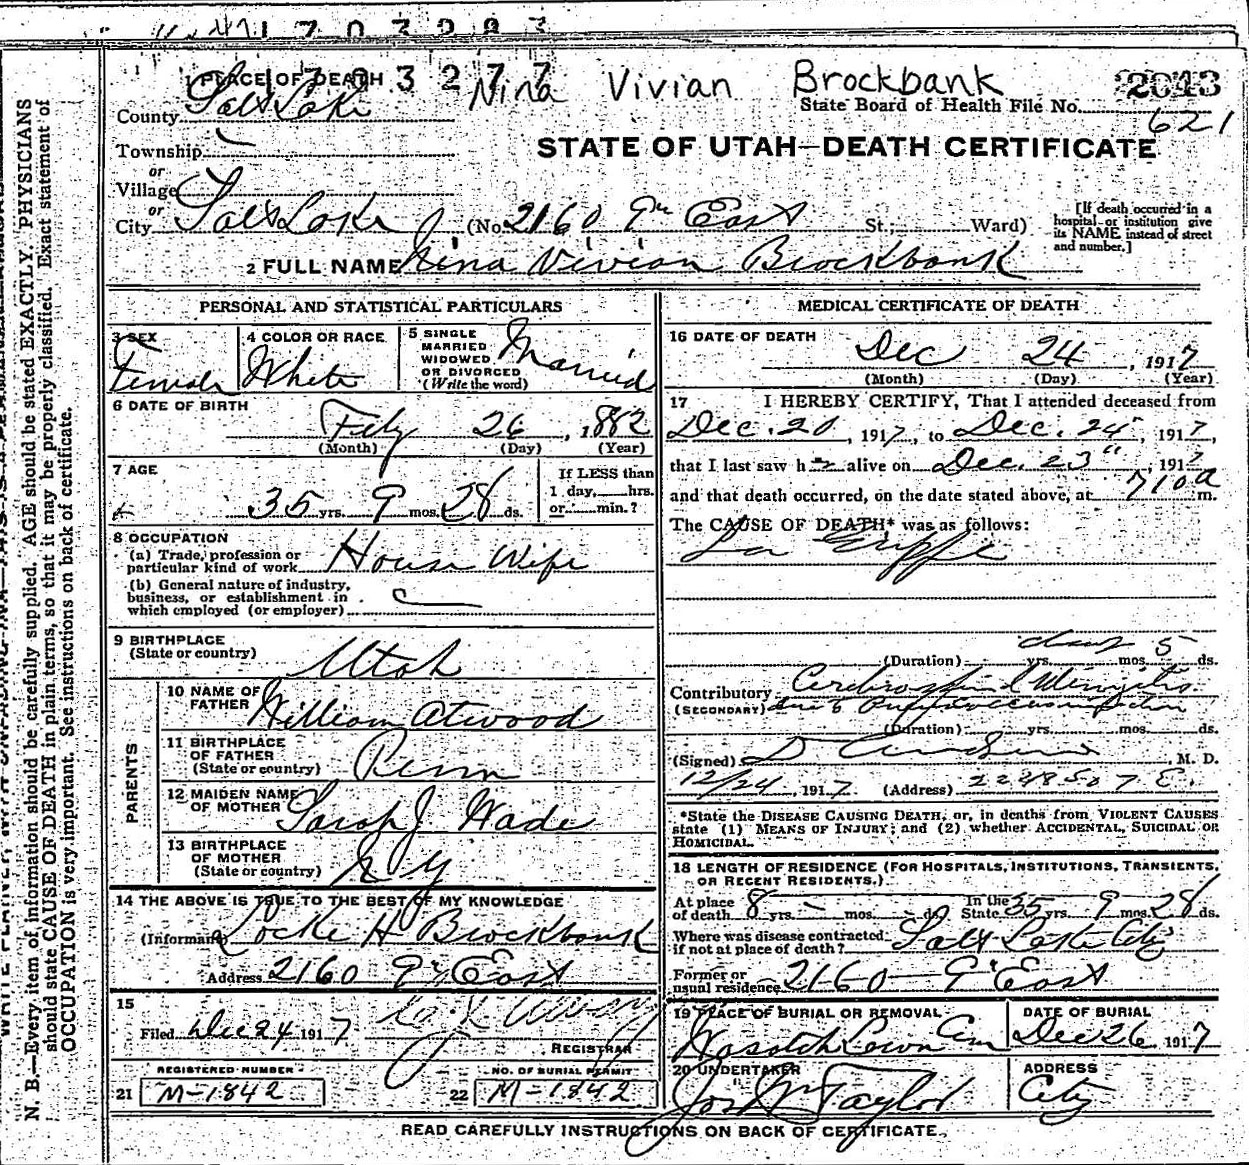 1703283
1703277
Nina Vivian Brockbank
2043
1 PLACE OF DEATH
County Salt Lake
State Board of Health File No. 621
Township
or
Village
or
STATE OF UTAH—DEATH CERTIFICATE
City Salt Lake (No. 2160 9th East St.; Ward)
[If death occurred in a hospital or institution give its NAME instead of street and number.]
2 FULL NAME Nina Vivian Brockbank
PERSONAL AND STATISTICAL PARTICULARS
3 SEX
Female
4 COLOR OR RACE
White
5 SINGLE
MARRIED
WIDOWED
OR DIVORCED
(Write the word)
Married
6 DATE OF BIRTH
Feby 26, 1882
(Month) (Day) (Year)
7 AGE
35 yrs. 9 mos. 28 ds.
If LESS than
1 day, hrs.
or min.?
8 OCCUPATION
(a) Trade, profession or
particular kind of work House Wife
(b) General nature of industry,
business, or establishment in
which employed (or employer)
9 BIRTHPLACE
(State or country)
Utah
PARENTS
10 NAME OF
FATHER William Atwood
11 BIRTHPLACE
OF FATHER
(State or country) Penn
12 MAIDEN NAME
OF MOTHER Sarah J Wade
13 BIRTHPLACE
OF MOTHER
(State or country) N Y
14 THE ABOVE IS TRUE TO THE BEST OF MY KNOWLEDGE
(Informant) Locke H Brockbank
Address 2160 9th East
15
Filed Dec 24 1917
REGISTRAR
REGISTERED NUMBER
21 M-1842
NO. OF BURIAL PERMIT
22 M-1842
MEDICAL CERTIFICATE OF DEATH
16 DATE OF DEATH
Dec 24, 1917
(Month) (Day) (Year)
17 I HEREBY CERTIFY, That I attended deceased from
Dec. 20, 1917, to Dec. 24, 1917,
that I last saw her alive on Dec. 23", 1917
and that death occurred, on the date stated above, at 710 a m.
The CAUSE OF DEATH* was as follows:
La Grippe
days 5
(Duration) yrs. mos. ds.
Contributory Cerebrospinal Mingitis
(SECONDARY) due to
(Duration) yrs. mos. ds.
(Signed) , M. D.
12/24, 1917. (Address) 2248 So 7 E.
*State the DISEASE CAUSING DEATH, or, in deaths from VIOLENT CAUSES
state (1) MEANS OF INJURY; and (2) whether ACCIDENTAL, SUICIDAL OR
HOMICIDAL.
18 LENGTH OF RESIDENCE (FOR HOSPITALS, INSTITUTIONS, TRANSIENTS,
OR RECENT RESIDENTS.)
At place
of death 8 yrs. - mos. - ds. In the
State 35 yrs. 9 mos. 28 ds.
Where was disease contracted
if not at place of death? Salt Lake City
Former or
usual residence 2160 - 9th East
19 PLACE OF BURIAL OR REMOVAL
Wasatch Lawn Cem
DATE OF BURIAL
Dec 26, 1917
20 UNDERTAKER
Jos Wm Taylor
ADDRESS
City
READ CAREFULLY INSTRUCTIONS ON BACK OF CERTIFICATE.
N. B.—Every item of information should be carefully supplied. AGE should be stated EXACTLY. PHYSICIANS
should state CAUSE OF DEATH in plain terms, so that it may be properly classified. Exact statement of
OCCUPATION is very important. See instructions on back of certificate.